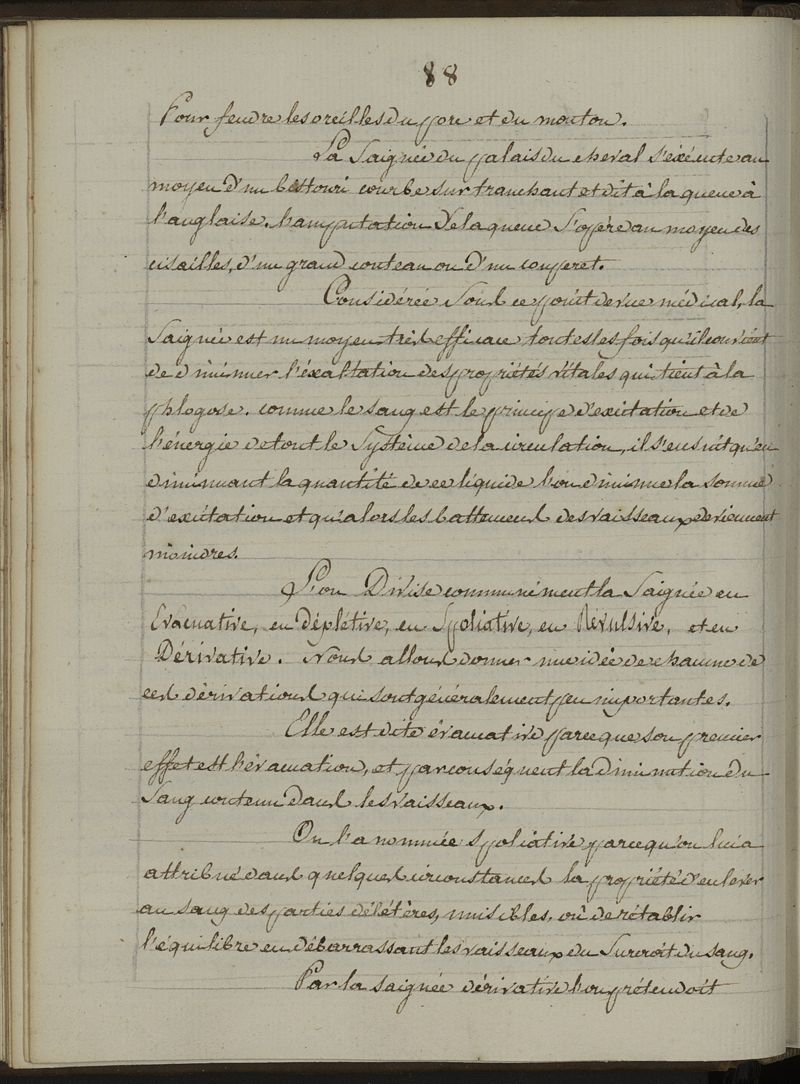 88
Pour fendre les oreilles du porc et du mouton.
La Saignée du palais du cheval s'éxécute au
moyen d'un bistouri courbe sur tranchant et dit à la queue à
l'anglaise. L'amputation de la queue s'opère au moyen des
cisailles, d'un grand couteau ou d'un couperet.
Considérée sous ce point de vue médical, la
Saignée est un moyen très efficace toutes les fois qu'il convient
de diminuer l'éxaltation des propriétés vitales qui tient à la
phlogose. comme le sang est le principe d'excitation et de
l'énergie de tout le Système de la circulation, il s'en suit qu'en
diminuant la quantité de ce liquide l'on diminue la somme
d'excitation et qu'alors les battemens des vaisseaux deviennent
moindres.
L'on Divise communément la Saignée en
Evacuative, en déplétive, en Spoliative, en Révulsive, et en
Dérivative. Nous allons donner une idée de chacune de
ces dérivations qui sont généralement peu importantes.
Elle est dite évacuative parceque son premier
effet est l'évacuation, et par conséquent la diminution du
Sang contenu dans les vaisseaux.
On l'a nommée spoliative parcequ'on lui a
attribué dans quelques circonstances la propriété d'enlever
au sang des parties délétères, nuisibles, où de rétablir
l'équilibre en débarrassant les vaisseaux du Surcroît du sang.
Par la saignée dérivative l'on prétendoit